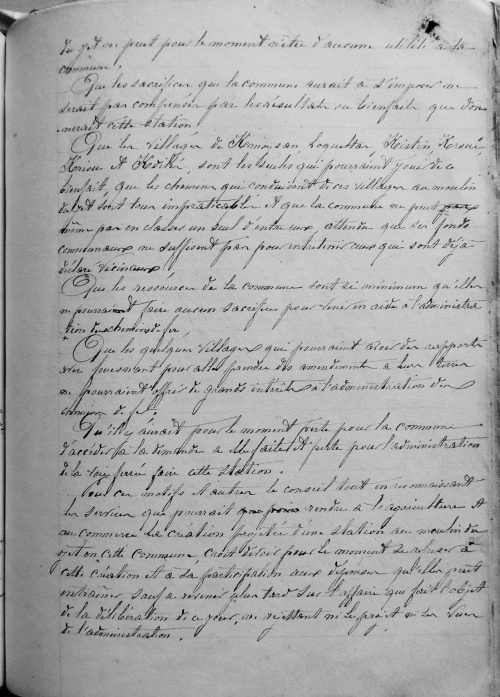 du jet on peut pour le moment n'être d'aucune utilité à la
commune.
Que les sacrifices que la commune aurait à s'imposer ne
serait pas compensés par les résultats ou bienfaits que don
nerait cette station.
Que les villages de Roquellas, Kerstin, Keroué,
Keriou et, sont les seuls qui pourraient jouir de ce
bienfait, que les chemins qui conduisent de ces villages au moulin
du jet sont tous impraticables et que la commune ne peut pas
même par en classer un seul d'entre eux, attendu que ses fonds
communaux ne suffisent pas pour entretenir ceux qui sont déjà
déclarés vicinaux.
Que les ressources de la commune sont si minimum qu'elles
ne pourraient faire aucun sacrifice pour venir en aide à l'administra
tion des chemins de fer.
Que les quelques villages qui pourraient avoir des rapports
avec pour aller prendre des amendements à leurs terres
ne pourraient offrir de grands intérêts à l'administration des
chemins de fer.
Qu'il y aurait pour le moment perte pour la commune
d'accéder à la demande a elle faite et perte pour l'administration
de la voie ferrée faire cette station.
Pour ces motifs et autres le conseil tout en reconnaissant
les services que pourrait rendre à l'agriculture et
au commerce la création projetée d'une station au moulin du
jet en cette commune, croit devoir pour le moment se refuser à
cette création et à sa participation aux dépenses qu'elle peut
entraîner sauf à revenir plus tard sur l'affaire qui fait l'objet
de la délibération de ce jour, ne rejettant ni le projet ni les vues
de l'administration.